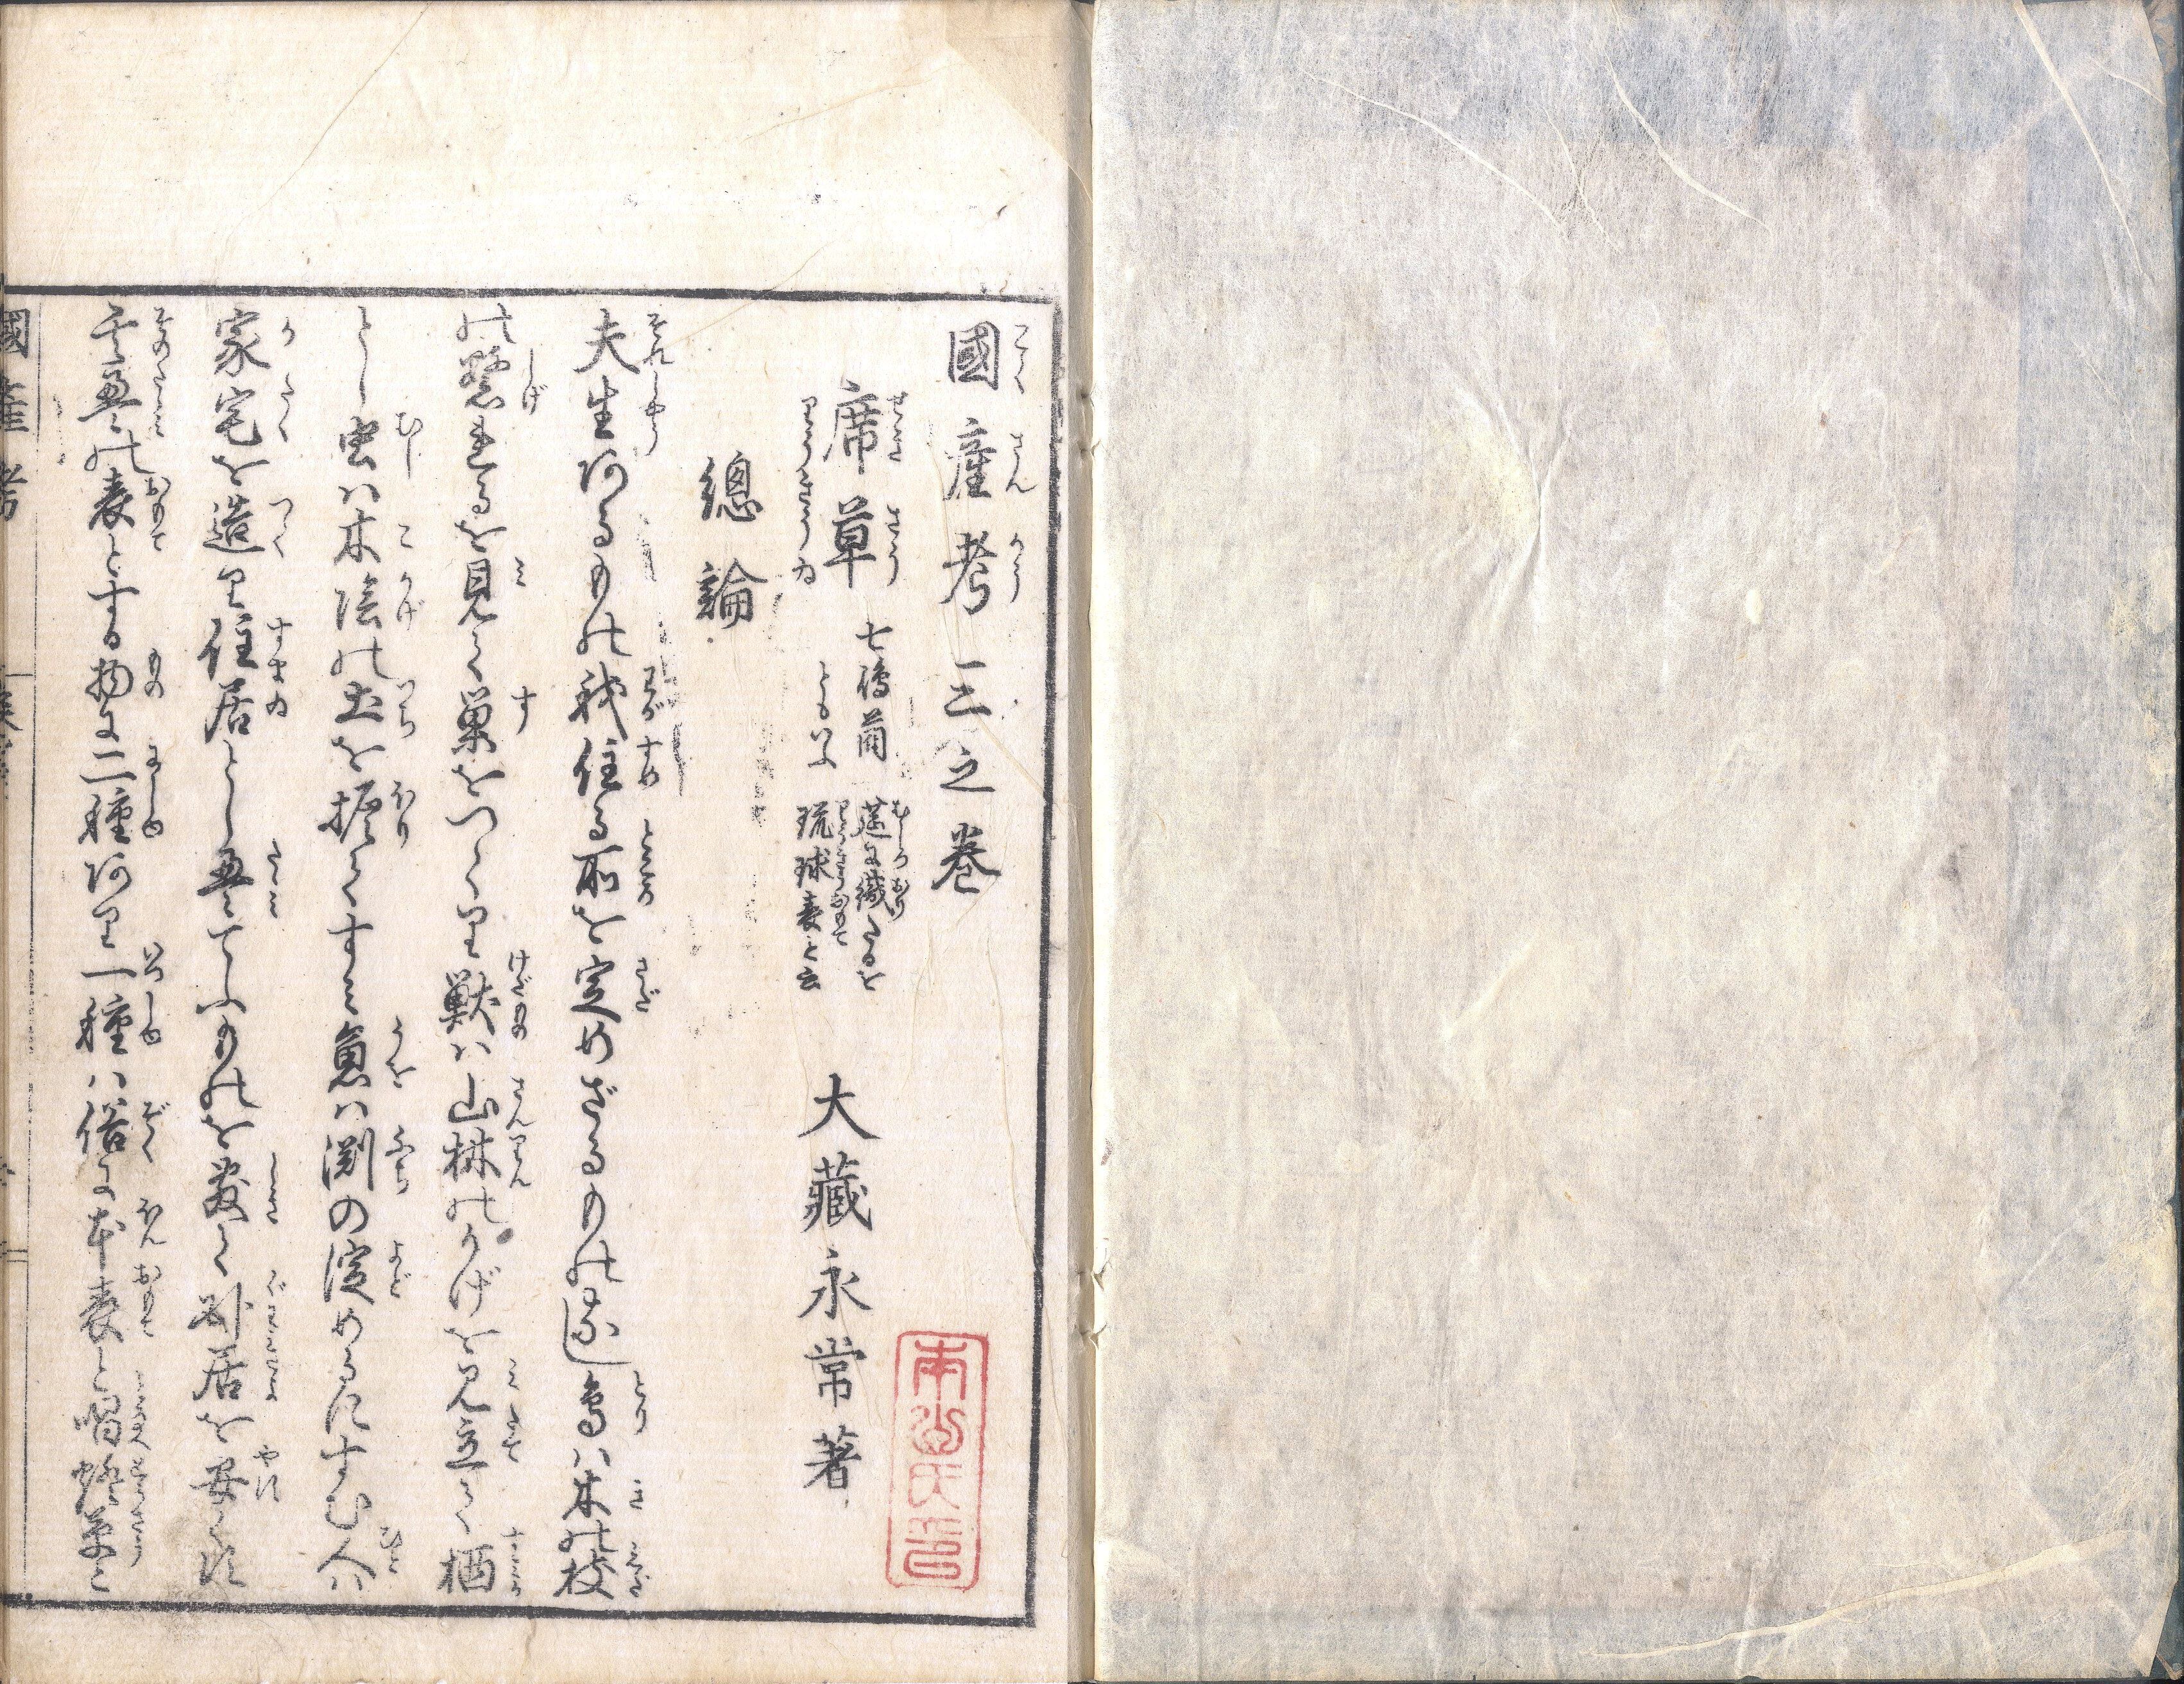 國産考三之巻
席草 七嶋藺ともいふ 莚に織たるを琉球表と云
大藏永常著
總論
夫生あるもの我住る所を定めざるものなし鳥ハ木の枝
の繁れるを見て巣をつくり獣ハ山林のかげを見立て栖
とし虫ハ木陰の土を掘てすミ魚ハ渕の淀めるにすむ人ハ
家宅を造り住居とし畳てふものを敷て臥居を安くす
其畳の表とする物に二種あり一種ハ俗に本表と唱蛬草と
國産考